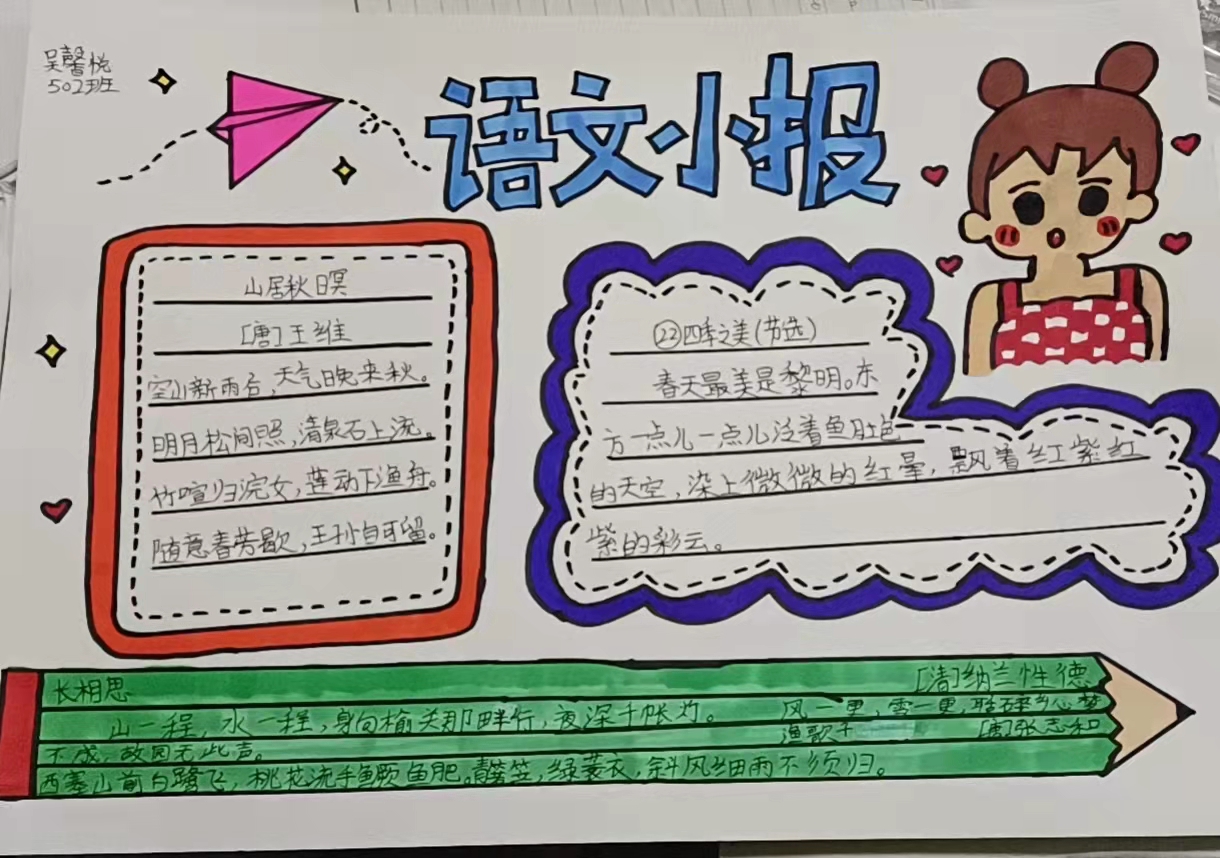 吴馨悦
502班
语文小报
山居秋暝
[唐]王维
空山新雨后,天气晚来秋。
明月松间照,清泉石上流。
竹喧归浣女,莲动下渔舟。
随意春芳歇,王孙自可留。
㉒四季之美(节选)
春天最美是黎明。东
方一点儿一点儿泛着鱼肚色
的天空,染上微微的红晕,飘着红紫红
紫的彩云。
长相思 [清]纳兰性德
山一程,水一程,身向榆关那畔行,夜深千帐灯。 风一更,雪一更,聒碎乡心梦
不成,故园无此声。 渔歌子 [唐]张志和
西塞山前白鹭飞,桃花流水鳜鱼肥。青箬笠,绿蓑衣,斜风细雨不须归。